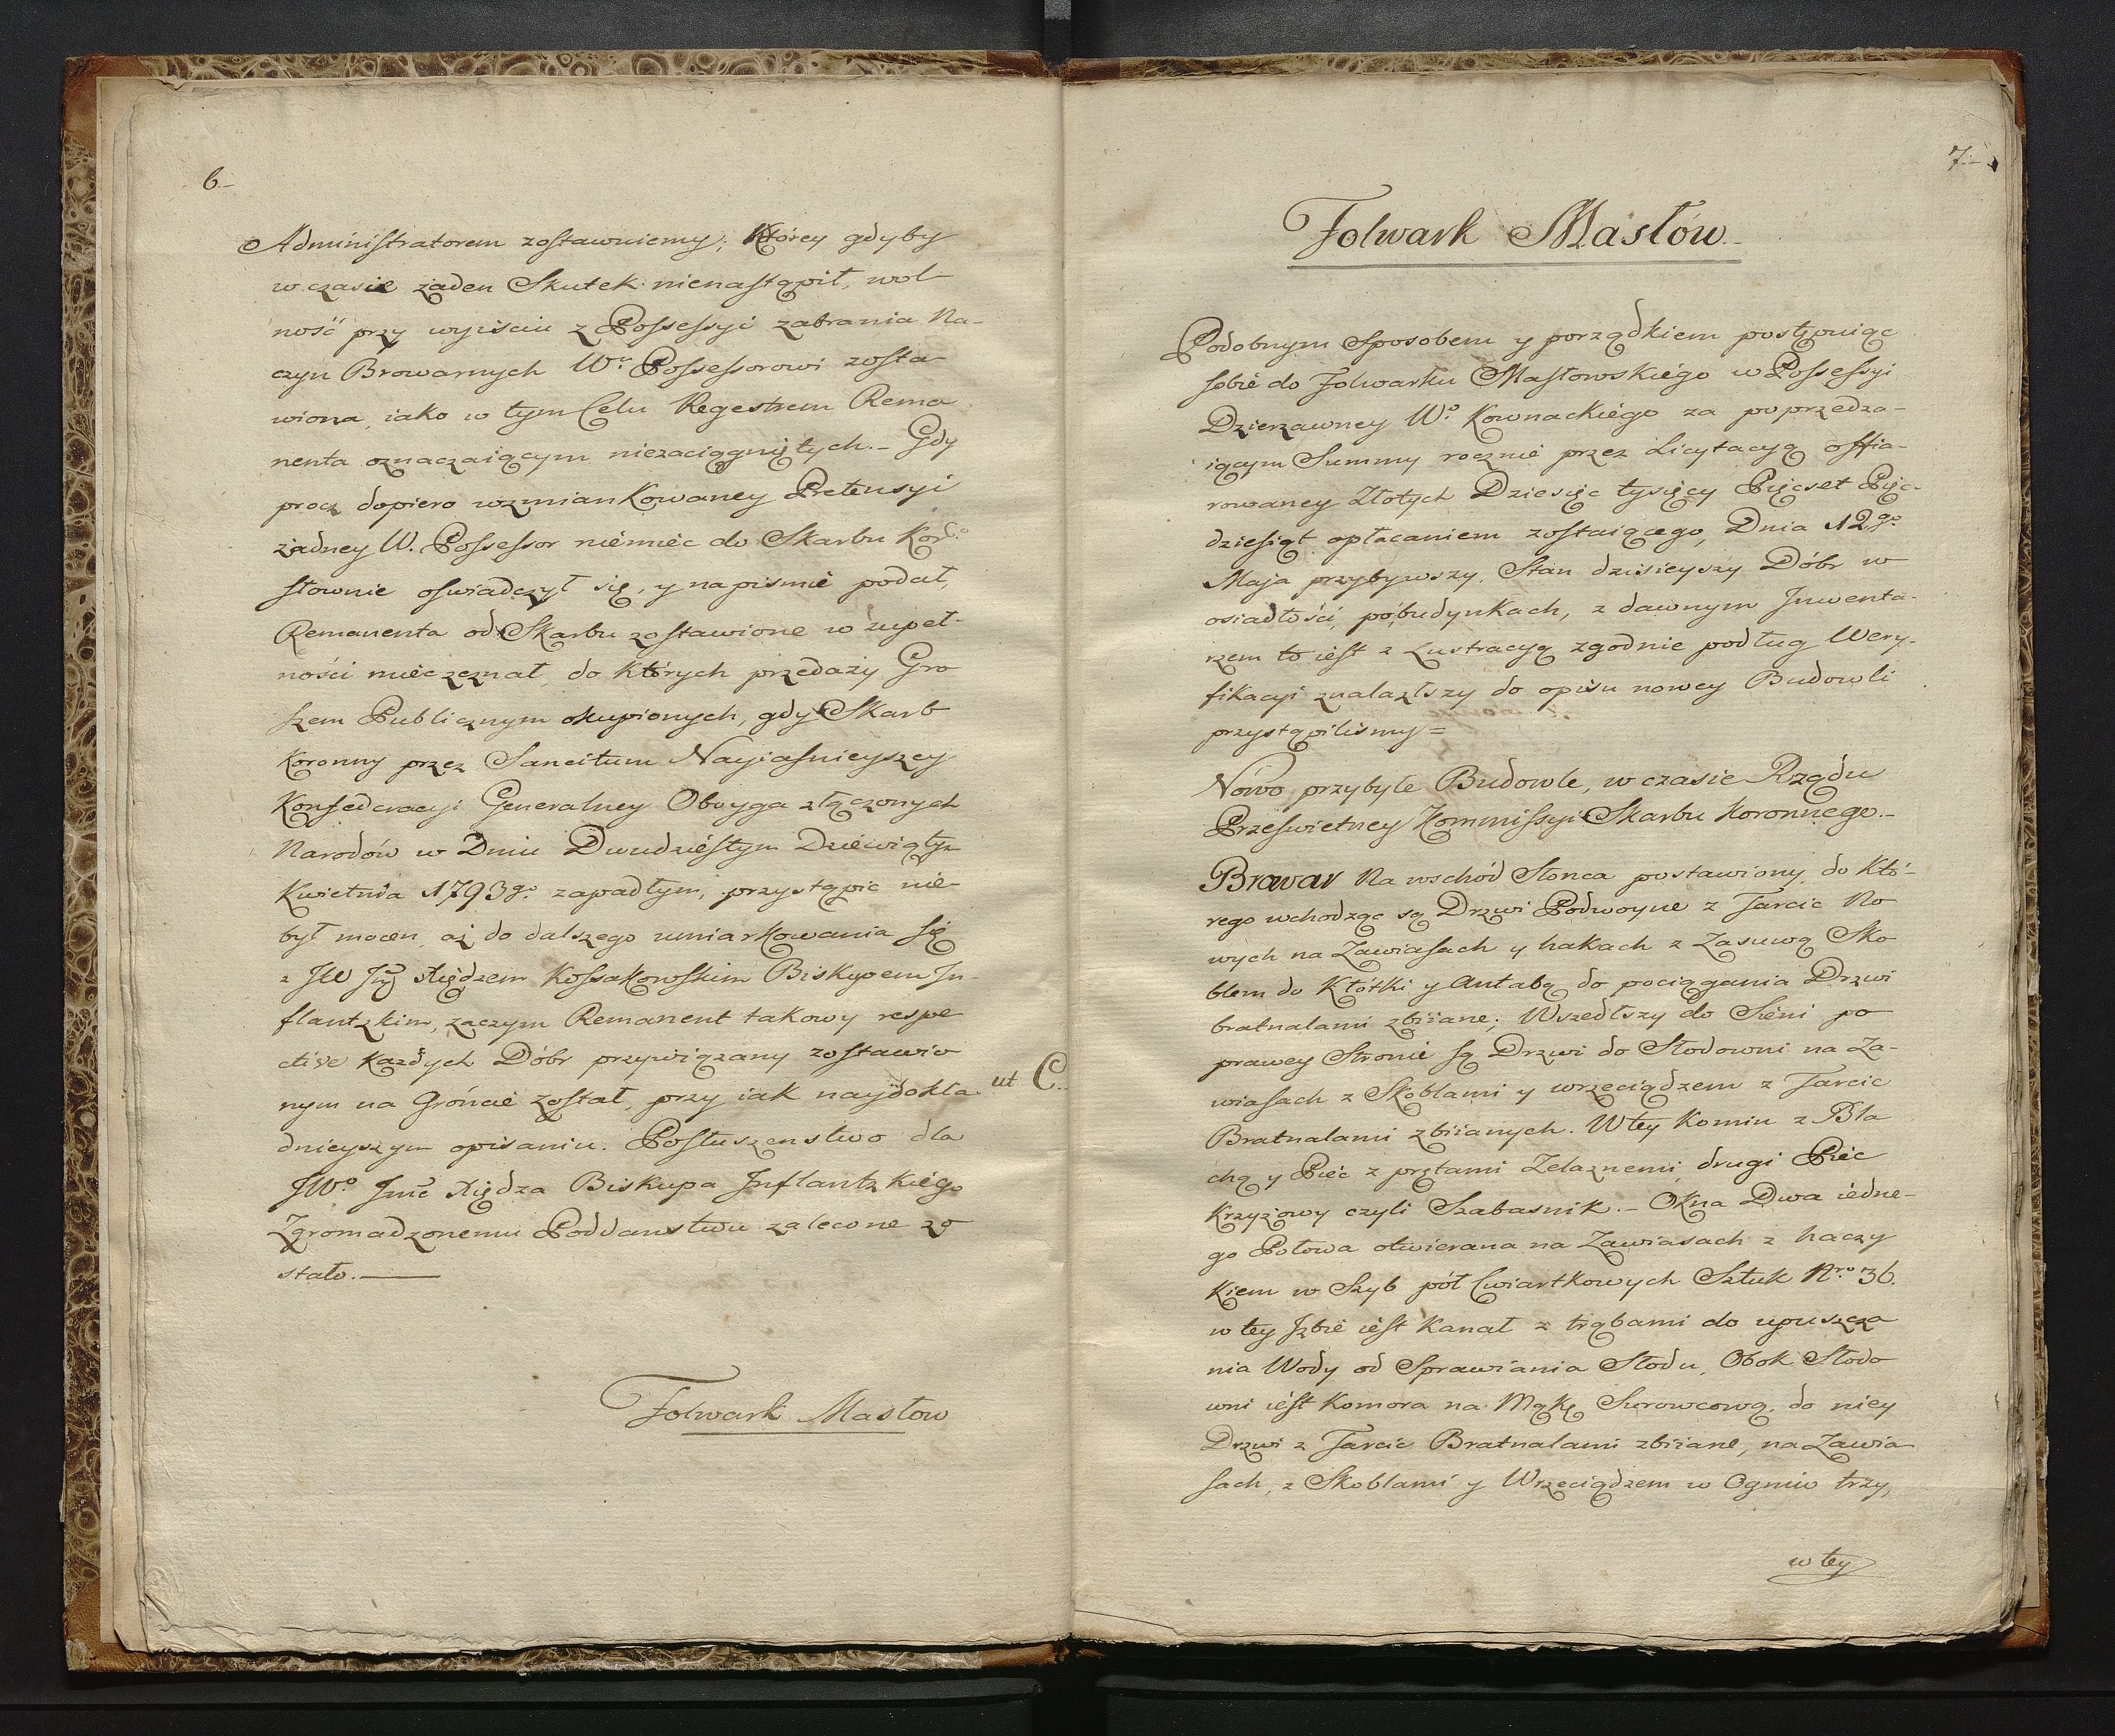 6.-
Administratorem zostawuiemy; Którey gdyby
w czasie żaden Skutek nienastąpił, wol
ność przy wyiściu z Possessyi zabrania Na-
czyn Browarnych Wu Possessorowi zosta
wiona, iako w tym Celu Regestrem Rema
nenta oznaczaiącym niezaciągniętych.- Gdy
procz dopiero wzmiankowaney Pretensyi
żadney W. Possessor niemieć do Skarbu Kor:
słownie oświadczył się, y napismie podał,
Remanenta od Skarbu zostawione w zupeł-
ności mieć zeznał, do Których przedaży Gro
szem Publicznym okupionych, gdy Skarb
Koronny przez Sancitum Nayiasnieyszey
Konfederacyi Generalney Oboyga złączonych
Narodów w Dniu Dwudziestym Dziewiątym
Kwietnia 1793go. zapadłym, przystąpic nie
był mocen, aż do dalszego umiarkowania się
z JW Jmć Xiędzem Kossakowskim Biskupem In-
flantzkim, zaczym Remanent takowy respe
ctive Każdych Dóbr przywiązany zostawio
nym na Gróncie został, przy iak naydokła- ut C.
dnieyszym opisaniu. Posłuszenstwo dla
JWo Jmć Xiędza Biskupa Inflantzkiego
Zgromadzonemu Poddanstwu zalecone zo
stało.
Folwark Masłow
7.-
Folwark Masłów.-
Podobnym Sposobem y porządkiem postępuiąc
sobie do Folwarku Masłowskiego w Possessyi
Dzierzawney Wo. Kownackiego za poprzedza-
iącym Summy rocznie przez Licytacyą offia-
rowaney Złotych Dziesięc tysięcy Pięcset Pięc-
dziesiąt opłacaniem zostaiącego, Dnia 12go.
Maja przybywszy, Stan dzisieyszy Dóbr w
osiadłości, po budynkach, z dawnym Inwenta-
rzem to iest z Lustracyą zgodnie podług Wery-
fikacyi znalazłszy do opisu nowey Budowli
przystąpilismy=
Nowo przybyłe Budowle, w czasie Rządu
Prześwietney Kommissyi Skarbu Koronnego.-
Browar Na wschód Słonca postawiony, do Któ-
rego wchodząc są Drzwi Podwoyne z Tarcic No
wych na Zawiasach y hakach z Zasuwą Sko
blem do Kłótki y Antabą do pociągania Drzwi
bratnalami zbiiane; Wszedłszy do Sieni po
prawey Stronie są Drzwi do Słodowni na Za-
wiasach z Skoblami y wrzeciądzem z Tarcic
Bratnalami zbiianych. W tey Komin z Bla
chą y Piec z prętami Zelaznemi, drugi Piec
Krzyżowy czyli Szabasnik.- Okna Dwa iedne-
go Połowa otwierana na Zawiasach z haczy
Kiem w Szyb pół Cwiartkowych Sztuk Nro. 36.
w tey Jzbie iest Kanał z trąbami do upuszcza
nia Wody od Sprawiania Słodu, Obok Słodo
wni iest Komora na Mąkę Surowcową, do niey
Drzwi z Tarcic Bratnalami zbiiane, na Zawia
sach, z Skoblami y Wrzeciądzem w Ogniw trzy,
w tey